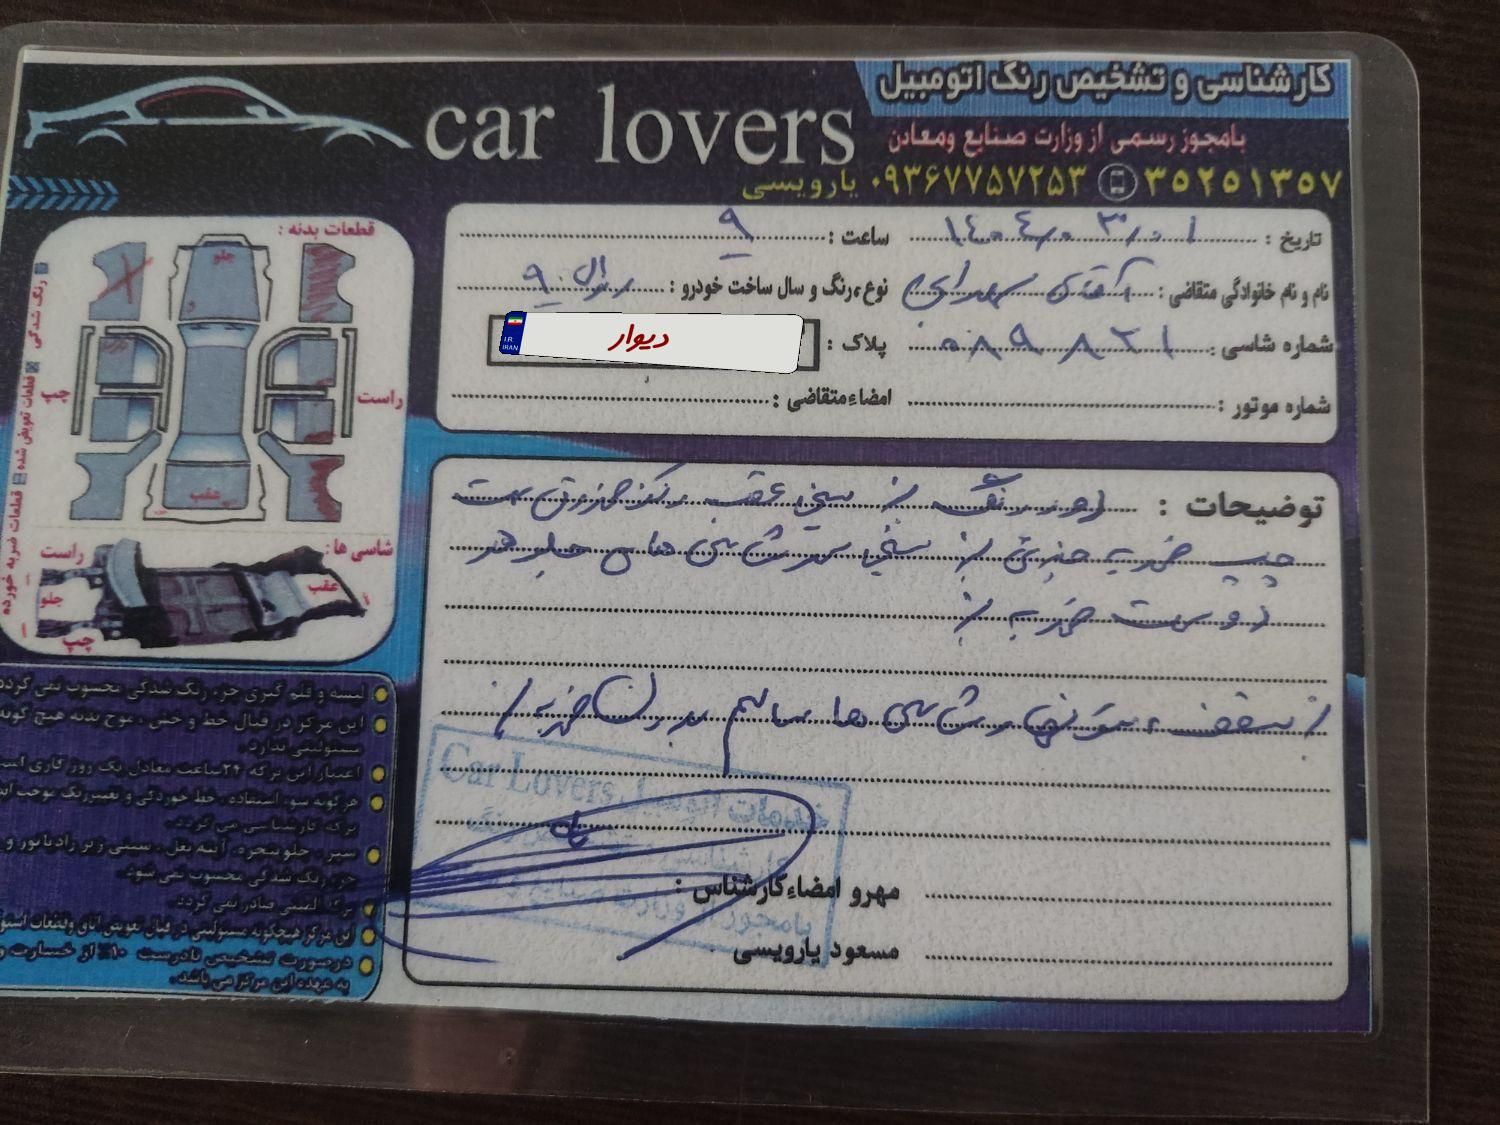 کارشناسی و تشخیص رنگ اتومبیل
car lovers
بامجوز رسمی از وزارت صنایع ومعادن
۳۵۲۵۱۳۵۷ ۰۹۳۶۷۷۵۷۲۵۳ یارویسی
تاریخ : ۱۴۰۴/۰۳/۰۱ ساعت : ۹
نام و نام خانوادگی متقاضی : آقای سهرابی نوع،رنگ و سال ساخت خودرو : ال ۹۰
شماره شاسی : ۰۸۹۸۲۱ پلاک : دیوار
I.R.
IRAN
شماره موتور : امضاءمتقاضی :
قطعات بدنه :
جلو
راست
چپ
عقب
رنگ شدگی
قطعات تعویض شده
قطعات ضربه خورده
شاسی ها :
راست
عقب
جلو
چپ
توضیحات : دور رنگ
چپ ضربه جزئی سرشاسی های جلو هر
دو سمت ضربه
سقف ، ستونها و شاسی ها سالم بدون ضربه
لیسه و قلم گیری جزء رنگ شدگی محسوب نمی گردد
این مرکز در قبال خط و خش ، موج بدنه هیچ گونه
مسئولیتی ندارد.
اعتبار این برگه ۲۴ساعت معادل یک روز کاری است
هرگونه سوء استفاده ، خط خوردگی و تغییررنگ موجب
برگه کارشناسی می گردد.
سپر ، جلوپنجره، آینه بغل ، سینی زیر رادیاتور و
جزء رنگ شدگی محسوب نمی شود.
برگه المثنی صادر نمی گردد.
این مرکز هیچگونه مسئولیتی در قبال تعویض اتاق وقطعات
درصورت تشخیص نادرست ۱۰٪ از خسارت
به عهده این مرکز می باشد.
Car Lovers
خدمات اتومبیل
بامجوز از وزارت صنایع
مهرو امضاءکارشناس :
مسعود یارویسی